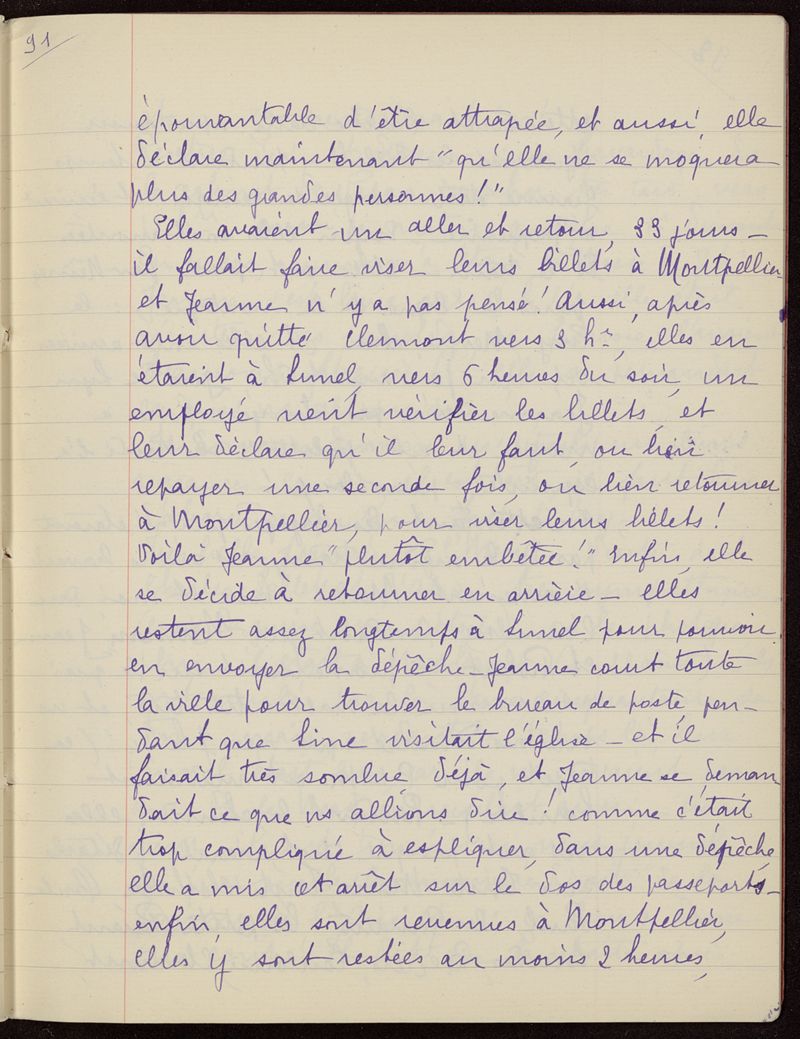 91
épouvantable d'être attrapée, et aussi, elle
déclare maintenant "qu'elle ne se moquera
plus des grandes personnes!"
Elles avaient un aller et retour, 33 jours –
il fallait faire viser leurs billets à Montpellier
et Jeanne n'y a pas pensé! Aussi, après
avoir quitté Clermont vers 3 hres, elles en
étaient à Lunel, vers 6 heures du soir, un
employé vient vérifier les billets, et
leur déclare qu'il leur faut, ou bien
repayer une seconde fois, ou bien retourner
à Montpellier, pour viser leurs billets!
Voilà Jeanne "plutôt embêtée!" Enfin, elle
se décide à retourner en arrière – elles
restent assez longtemps à Lunel pour pouvoir
en envoyer la dépêche – Jeanne court toute
la ville pour trouver le bureau de poste pen-
dant que Line visitait l'église – et il
faisait très sombre déjà, et Jeanne se deman-
dait ce que ns allions dire! comme c'était
trop compliqué à espliquer, dans une dépêche,
elle a mis cet arrêt sur le dos des passeports –
enfin, elles sont revenues à Montpellier,
elles y sont restées au moins 2 heures,